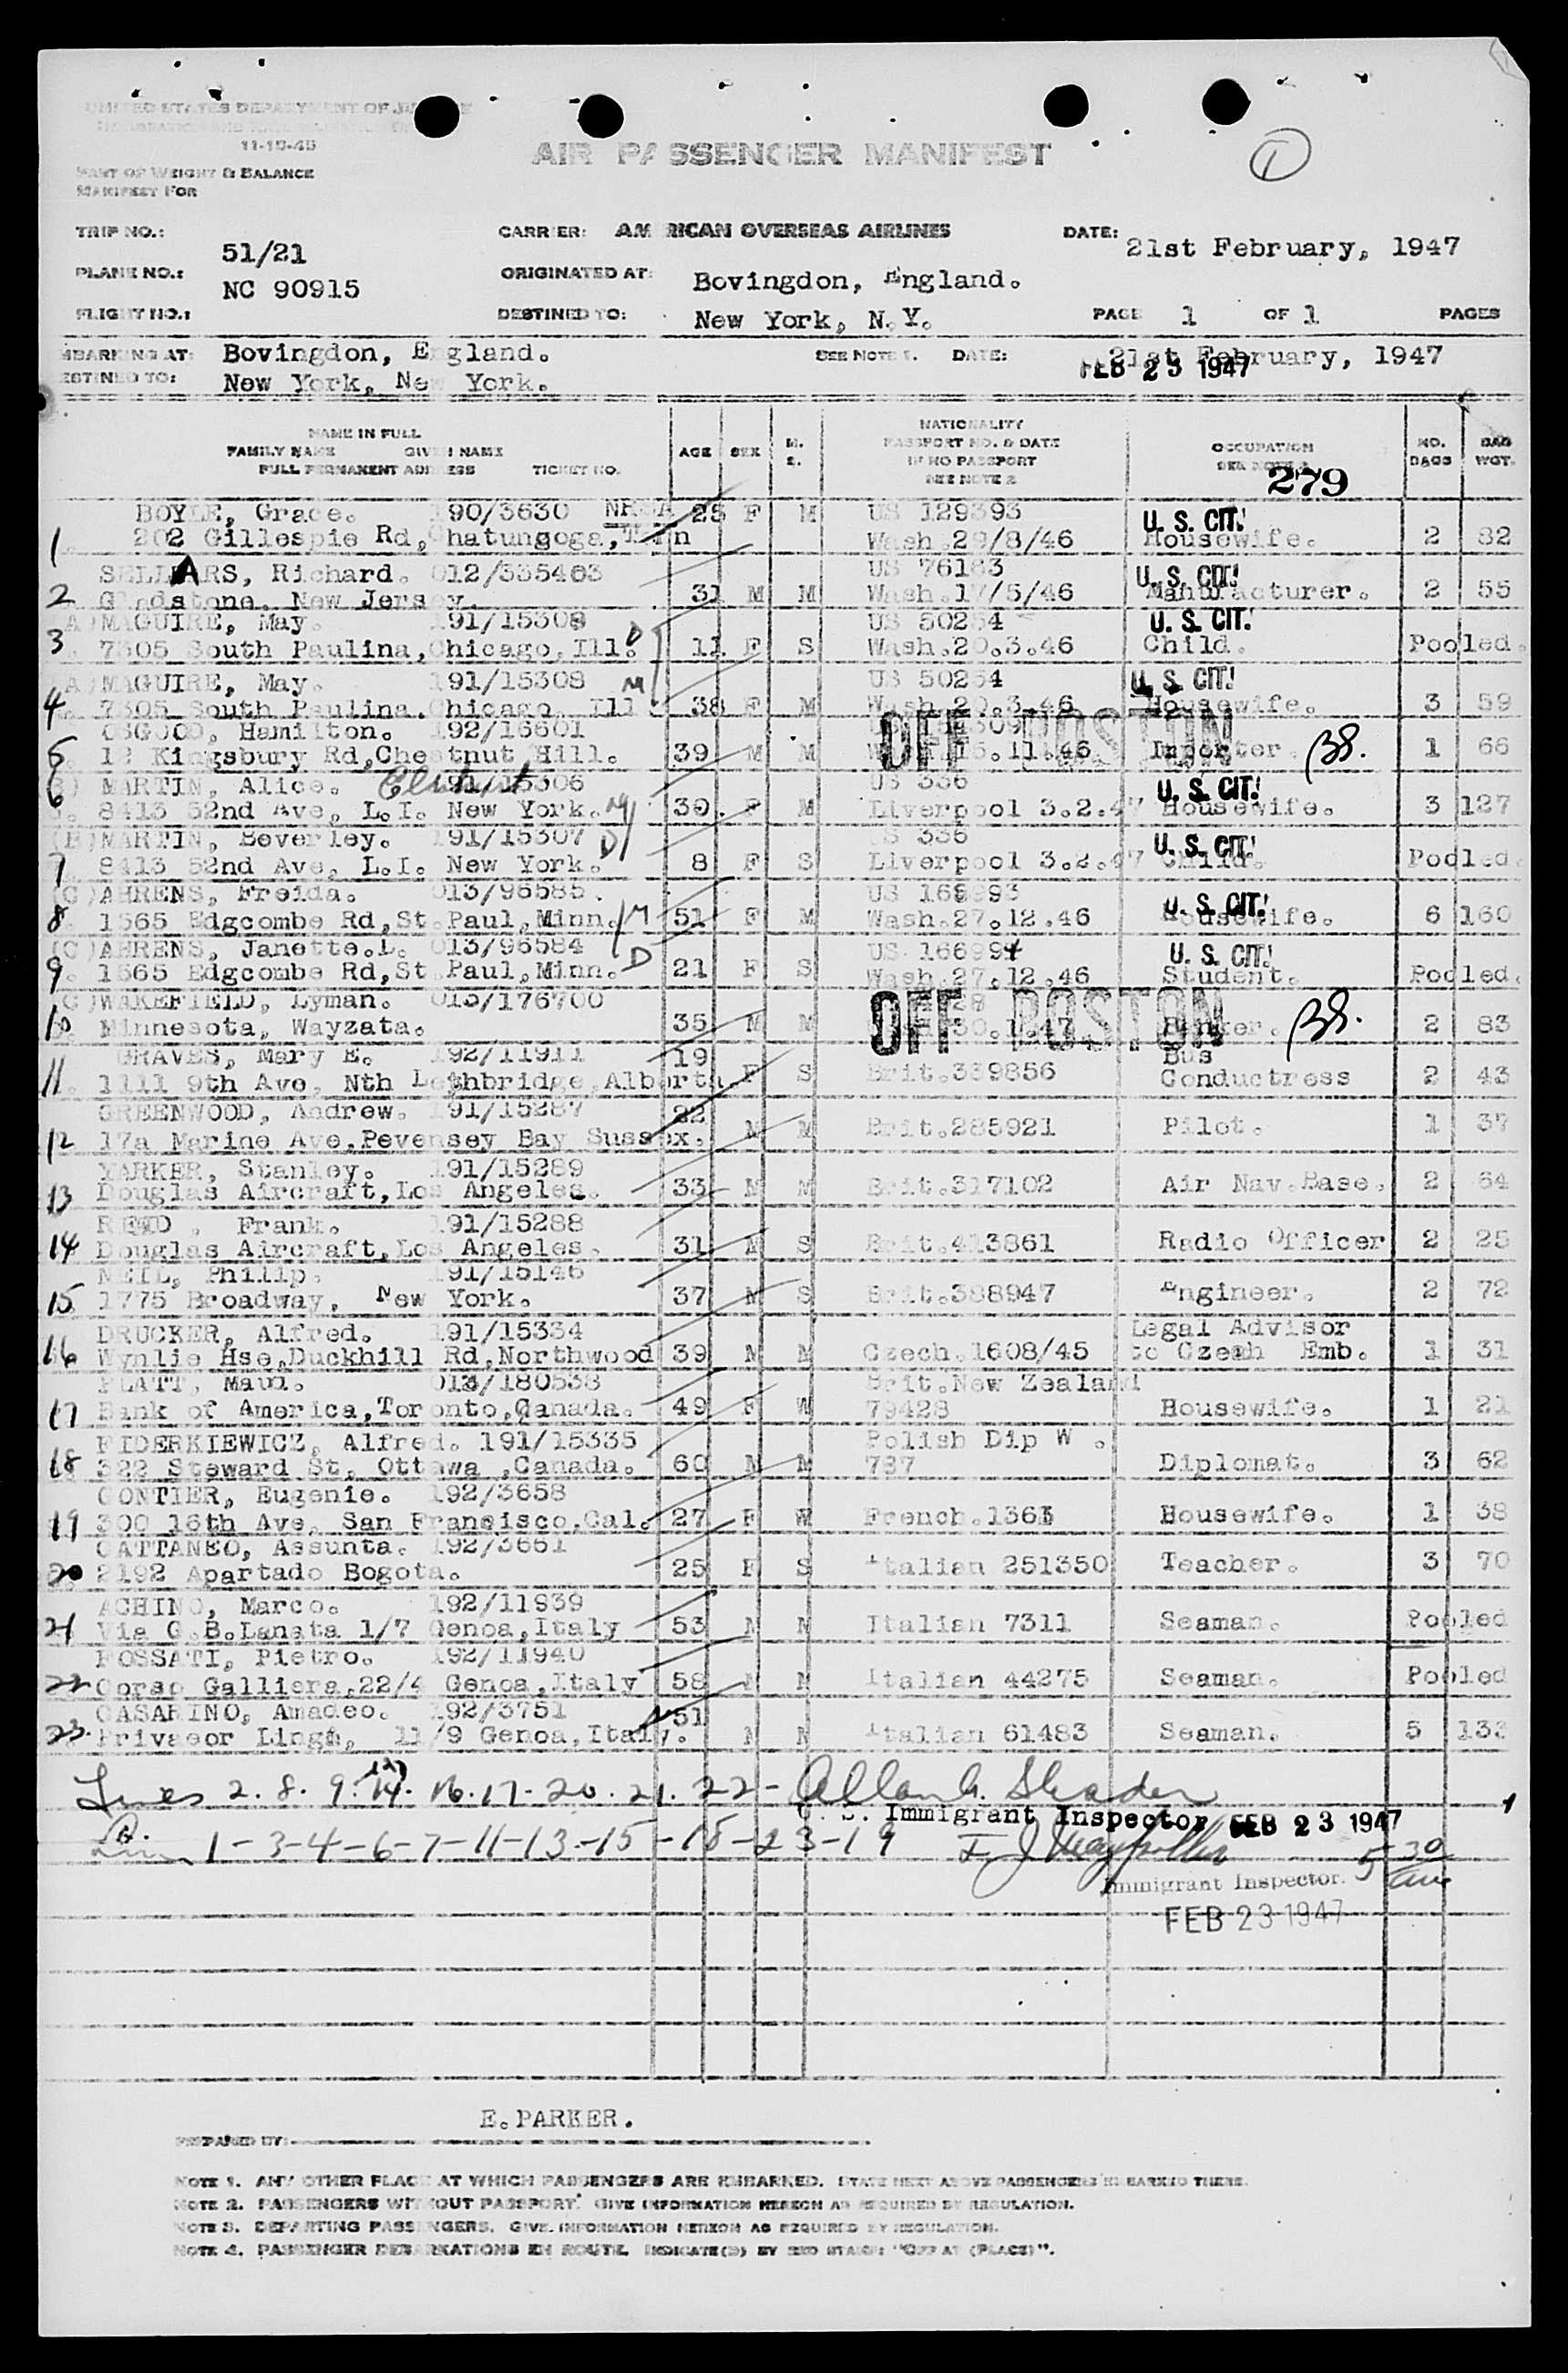 UNITED STATES DEPARTMENT OF JUSTICE
11-15-45
AIR PASSENGER MANIFEST
1
PART OF WEIGHT & BALANCE
MANIFEST FOR
TRIP NO.: 51/21 CARRIER: AMERICAN OVERSEAS AIRLINES DATE: 21st February, 1947
PLANE NO.: NC 90915 ORIGINATED AT: Bovingdon, England.
FLIGHT NO.: DESTINED TO: New York, N.Y. PAGE 1 OF 1 PAGES
EMBARKING AT: Bovingdon, England. SEE NOTE 1. DATE: 21st February, 1947
FEB 23 1947
DESTINED TO: New York, New York.
NAME IN FULL
FAMILY NAME GIVEN NAME
FULL PERMANENT ADDRESS TICKET NO.
AGE SEX M. S.
NATIONALITY
PASSPORT NO. & DATE
IF NO PASSPORT
SEE NOTE 2
OCCUPATION
SEE NOTE 3
NO. BAGS BAG WGT.
279
BOYLE, Grace. 190/3630 25 F M US 129393 U. S. CIT.
1 202 Gillespie Rd, Chatungoga, Tenn Wash.29/8/46 Housewife. 2 82
SELLARS, Richard. 012/335403 US 76183 U. S. CIT.
2 Gladstone, New Jersey. 31 M M Wash.17/5/46 Manufacturer. 2 55
(A) MAGUIRE, May. 191/15309 US 50264 U. S. CIT.
3 7305 South Paulina, Chicago, Ill. D 11 F S Wash.20.3.46 Child. Pooled.
(A) MAGUIRE, May. 191/15308 M US 50264 U. S. CIT.
4 7305 South Paulina, Chicago, Ill 38 F M Wash.20.3.46 Housewife. 3 59
OSGOOD, Hamilton. 192/16601 OFF BOSTON
5 12 Kingsbury Rd, Chestnut Hill. 39 M M 15.11.46 Importer. 1 66
(B) MARTIN, Alice. 191/15306 US 336 U. S. CIT.
6 8413 52nd Ave, L.I. New York. M 30. F M Liverpool 3.2.47 Housewife. 3 127
(B) MARTIN, Beverley. 191/15307 D US 336 U. S. CIT.
7 8413 52nd Ave, L.I. New York. 8 F S Liverpool 3.2.47 Child. Pooled.
(C) AHRENS, Freida. 013/96585. US 166993 U. S. CIT.
8 1565 Edgcombe Rd, St.Paul, Minn. M 51 F M Wash.27.12.46 Housewife. 6 160
(C) AHRENS, Janette.L. 013/96584 US 166994 U. S. CIT.
9 1565 Edgcombe Rd, St.Paul, Minn. D 21 F S Wash.27.12.46 Student. Pooled.
WAKEFIELD, Lyman. 013/176700 OFF BOSTON
10 Minnesota, Wayzata. 35 M M 30.1.47 Banker. 2 83
GRAVES, Mary E. 192/11911 19 Bus
11. 1111 9th Ave, Nth Lethbridge, Alberta. F S Brit.339856 Conductress 2 43
GREENWOOD, Andrew. 191/15287 22
12 17a Marine Ave, Pevensey Bay Sussex. M M Brit.285921 Pilot. 1 37
YARKER, Stanley. 191/15289
13 Douglas Aircraft, Los Angeles. 33 M M Brit.317102 Air Nav.Base. 2 64
REID, Frank. 191/15288
14 Douglas Aircraft, Los Angeles. 31 M S Brit.413861 Radio Officer 2 25
NEIL, Philip. 191/15146
15 1775 Broadway, New York. 37 M S Brit.388947 Engineer. 2 72
DRUCKER, Alfred. 191/15334 Legal Advisor
16 Wynlie Hse, Duckhill Rd, Northwood 39 M M Czech.1608/45 to Czech Emb. 1 31
PLATT, Maud. 013/180538 Brit.New Zealand
17 Bank of America, Toronto, Canada. 49 F W 79428 Housewife. 1 21
FIDERKIEWICZ, Alfred. 191/15335 Polish Dip W.
18 322 Steward St, Ottawa, Canada. 60 M M 737 Diplomat. 3 62
GONTIER, Eugenie. 192/3658
19 300 16th Ave, San Francisco, Cal. 27 F W French.1363 Housewife. 1 38
CATTANEO, Assunta. 192/3661
20 2192 Apartado Bogota. 25 F S Italian 251350 Teacher. 3 70
ACHINO, Marco. 192/11939
21 Via G.B.Lanata 1/7 Genoa, Italy 53 M M Italian 7311 Seaman. Pooled
FOSSATI, Pietro. 192/11940
22 Corso Galliera, 22/4 Genoa, Italy 58 M M Italian 44275 Seaman. Pooled
CASARINO, Amadeo. 192/3751 51
23. 11/9 Genoa, Italy. M M Italian 61483 Seaman. 5 133
Lines 2. 8. 9. 14. 16. 17- 20. 21. 22-
U. S. Immigrant Inspector FEB 23 1947
1-3-4-6-7-11-13-15-18-23-19
Immigrant Inspector. 5 30 am
FEB 23 1947
E. PARKER.
PREPARED BY:
NOTE 1. ANY OTHER PLACE AT WHICH PASSENGERS ARE EMBARKED. STATE NEXT ABOVE PASSENGERS EMBARKED THERE.
NOTE 2. PASSENGERS WITHOUT PASSPORT. GIVE INFORMATION HEREON AS REQUIRED BY REGULATION.
NOTE 3. DEPARTING PASSENGERS. GIVE INFORMATION HEREON AS REQUIRED BY REGULATION.
NOTE 4. PASSENGER DEBARKATIONS EN ROUTE. INDICATE(D) BY END STAMP: "OFF AT (PLACE)".